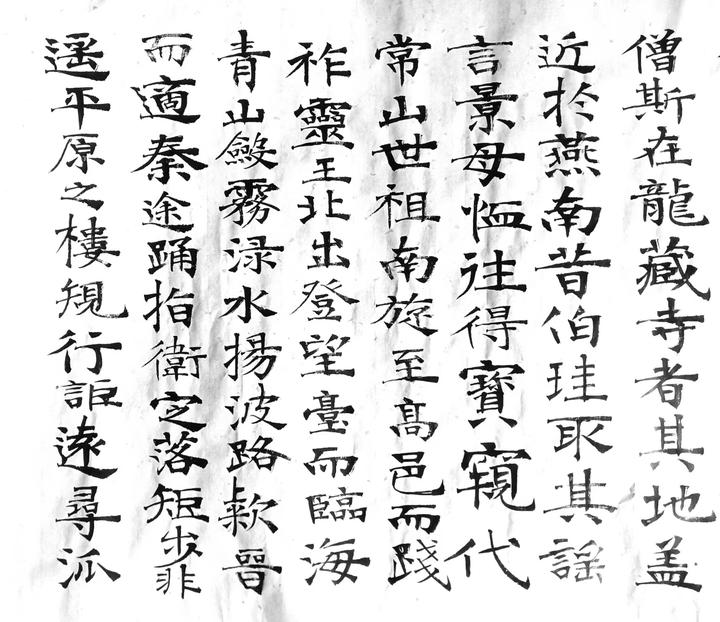 僧斯在龍藏寺者其地盖
近扵燕南昔伯珪取其謡
言景母恤往得寶窺代
常山世祖南旋至髙邑而踐
祚靈王北出登望臺而臨海
青山斂霧渌水揚波路款晉
而適秦途踊指衛㝎落矩步非
遥平原之樓規行詎遠尋泒